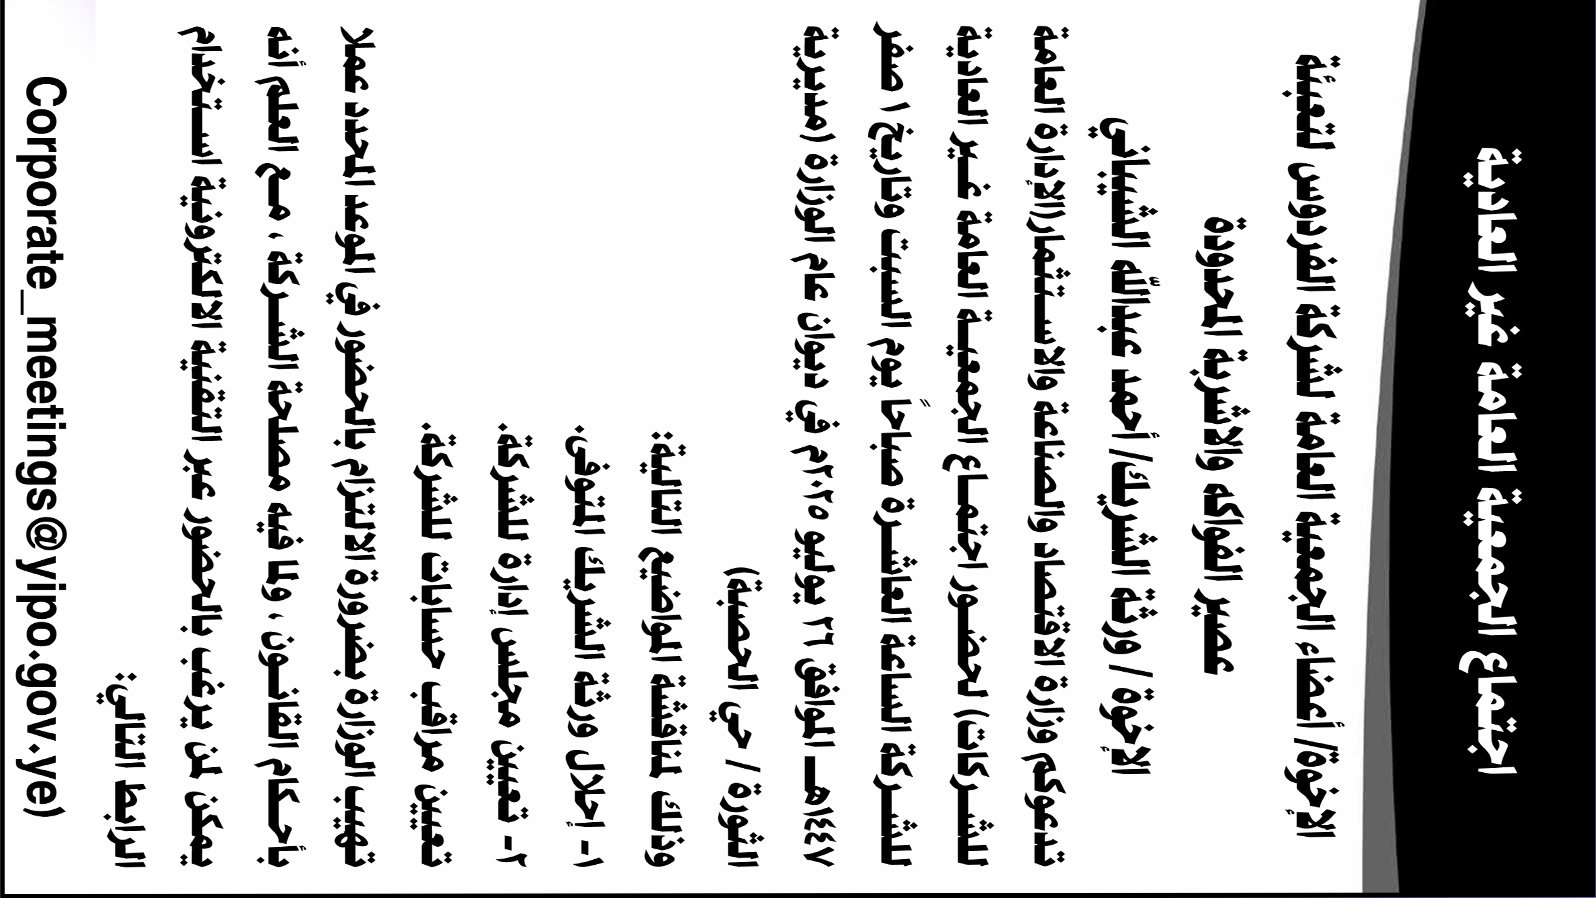 اجتماع الجمعية العامة غير العادية
الإخوة/ أعضاء الجمعية العامة لشركة الفردوس لتعبئة
عصير الفواكه والاشربة المحدودة
الإخوة / ورثة الشريك/ أحمد عبدالله الشيباني
تدعوكم وزارة الاقتصاد والصناعة والاستثمار(الإدارة العامة
للشركات) لحضور اجتماع الجمعية العامة غير العادية
للشركة الساعة العاشرة صباحاً يوم السبت وتاريخ ١ صفر
١٤٤٧هـ الموافق ٢٦ يوليو ٢٠٢٥م في ديوان عام الوزارة (مديرية
الثورة / حي الحصبة)
وذلك لمناقشة المواضيع التالية:
١- إحلال ورثة الشريك المتوفى.
٢- تعيين مجلس إدارة للشركة.
تعيين مراقب حسابات للشركة.
تهيب الوزارة بضرورة الالتزام بالحضور في الموعد المحدد عملا
بأحكام القانون ، ولما فيه مصلحة الشركة ، مع العلم أنه
يمكن لمن يرغب بالحضور عبر التقنية الالكترونية استخدام
الرابط التالي:
Corporate_meetings@yipo.gov.ye)